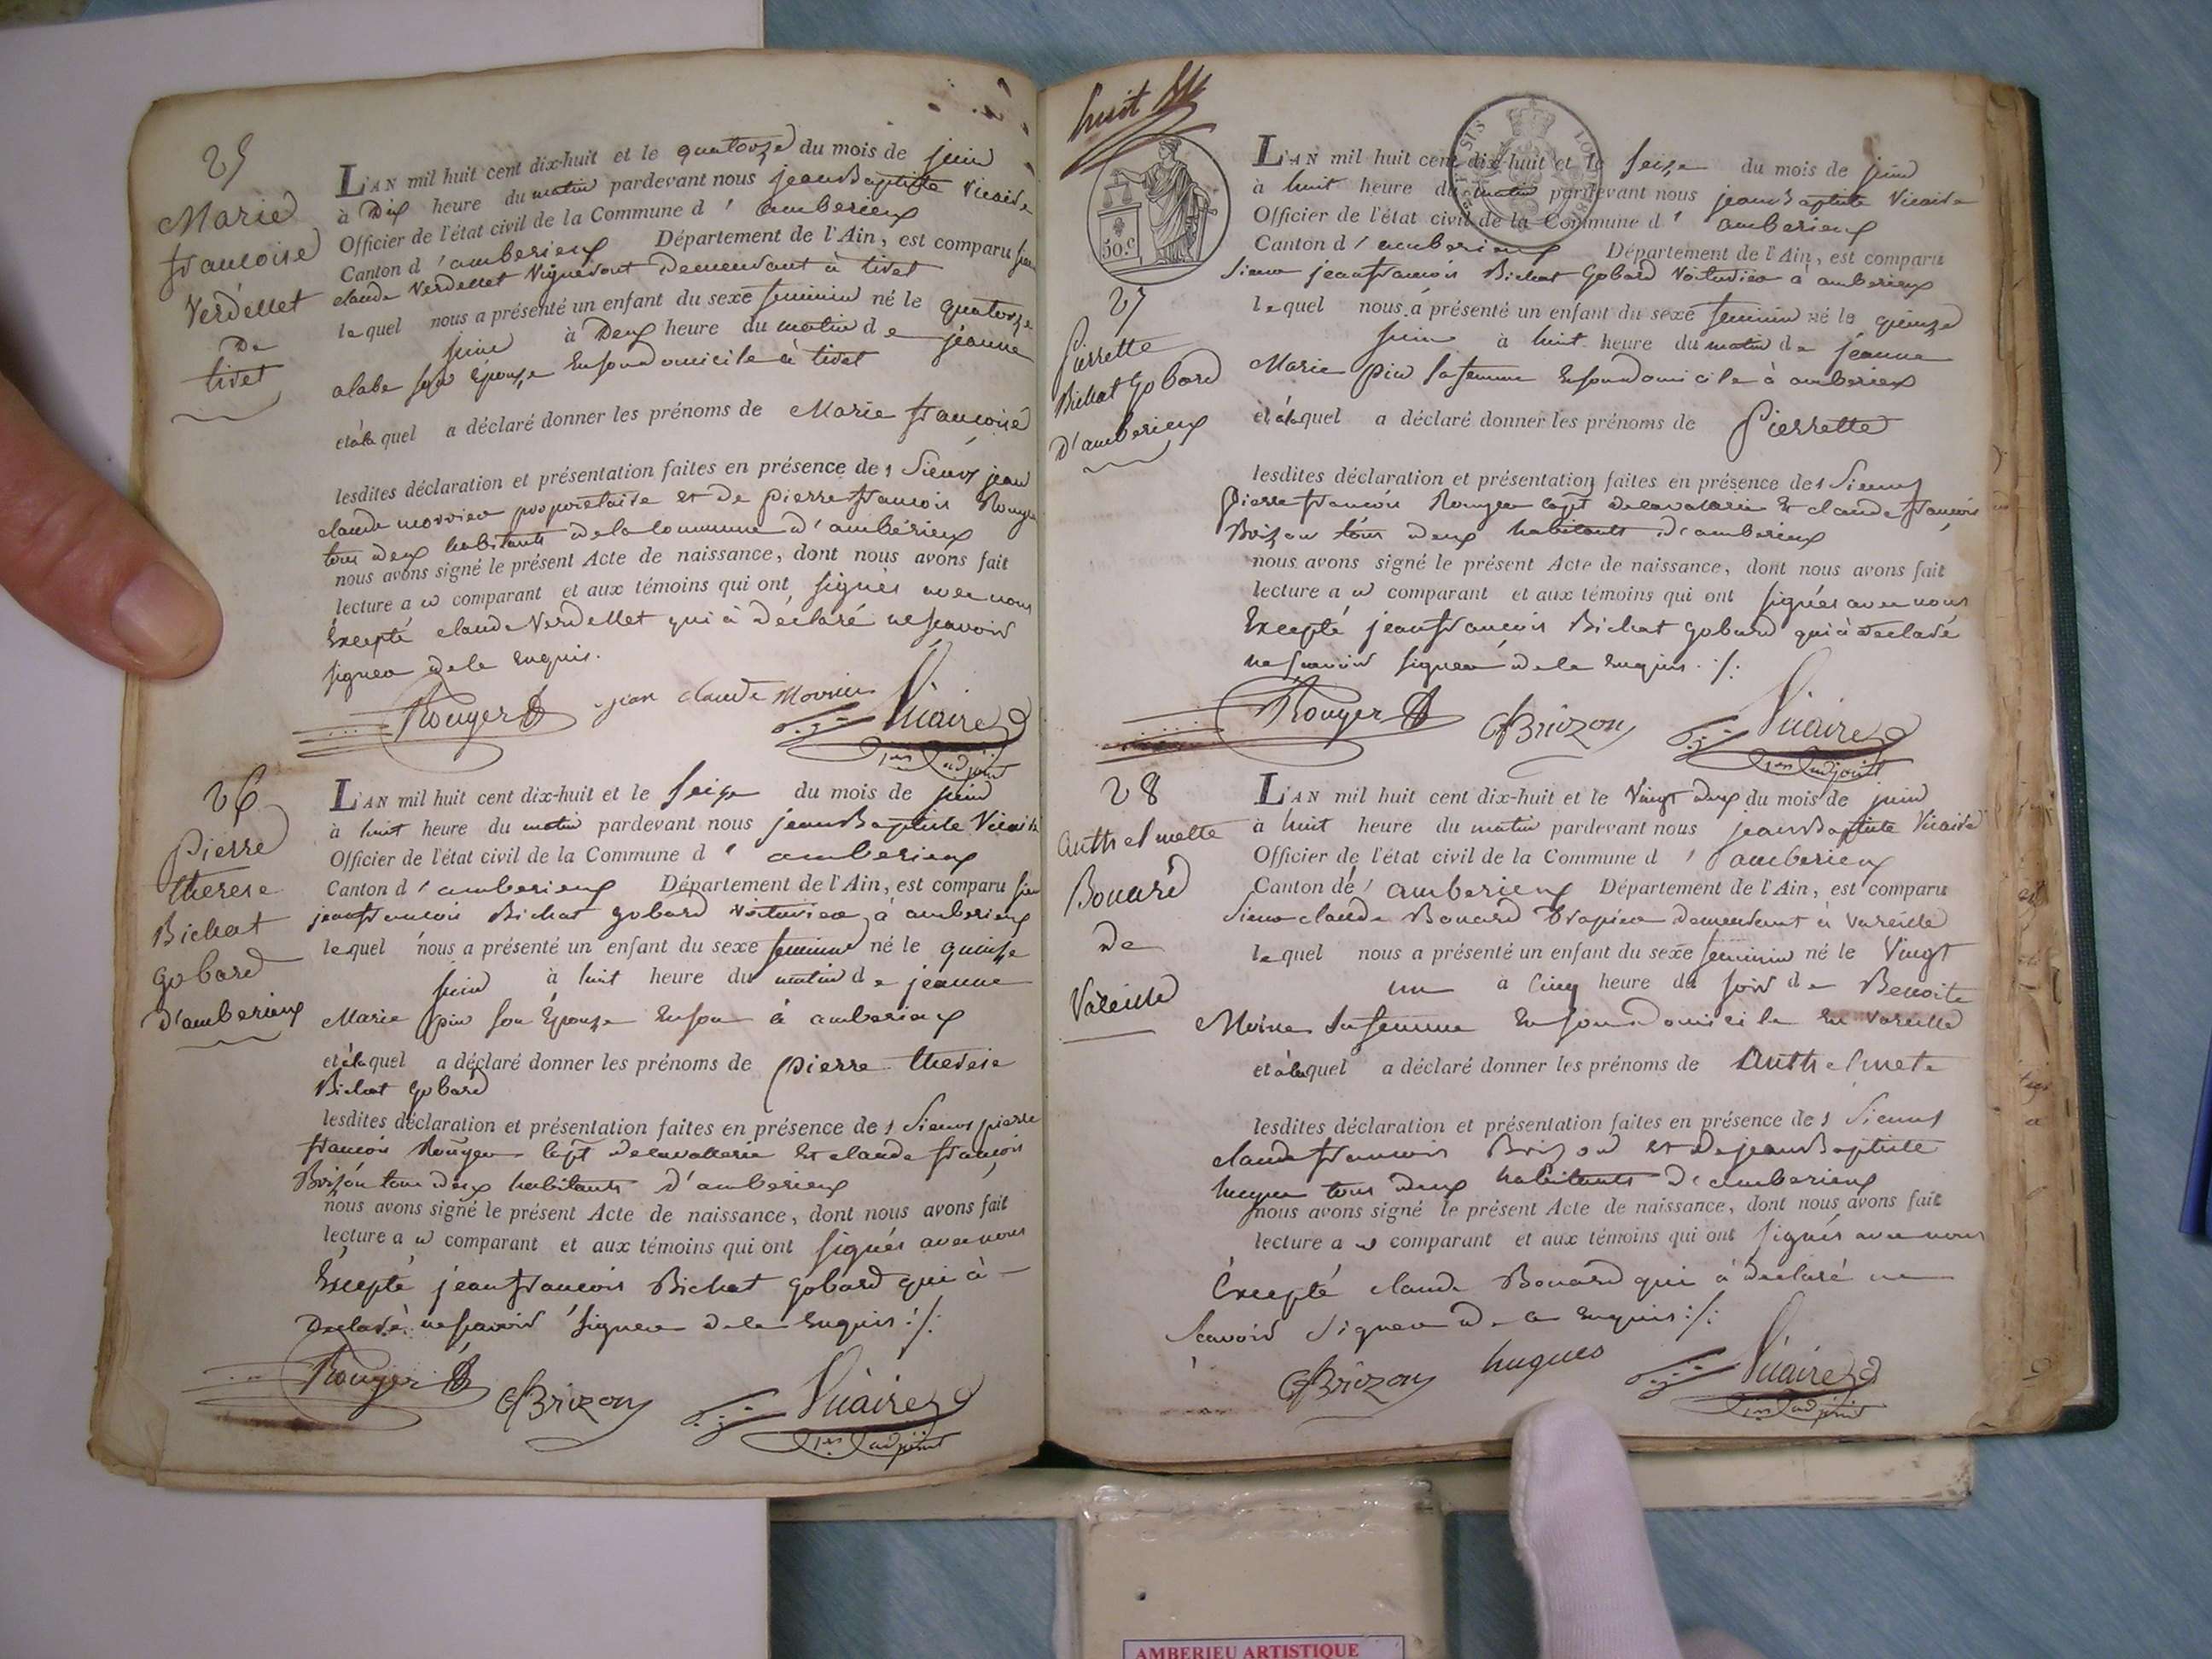 25
Marie
francoise
Verdellet
De
tiret
L'AN mil huit cent dix-huit et le quatorze du mois de juin
à Dix heure du matin pardevant nous jean Baptiste Vicaire
Officier de l'état civil de la Commune d' amberieux
Canton d' amberieux Département de l'Ain, est comparu
claude Verdellet Vigneront Demeurant à tiret
lequel nous a présenté un enfant du sexe feminin né le quatorze
juin à Deux heure du matin de jeanne
alabe son Epouze En son domicile à tiret
et à laquel a déclaré donner les prénoms de Marie francoise
lesdites déclaration et présentation faites en présence des Sieurs jean
claude morrier propriétaire et de pierre francois Rouyer
tous deux habitants de la Commune d'ambérieux
nous avons signé le présent Acte de naissance, dont nous avons fait
lecture a u comparant et aux témoins qui ont signés avec nous
Excepté claude Verdellet qui à déclaré ne scavoir
signer de ce Enquis.
Rouyer jean claude Morrier Vicaire
1er adjoint
26
Pierre
therese
Bichat
gobard
d'amberieux
L'AN mil huit cent dix-huit et le seize du mois de juin
à huit heure du matin pardevant nous jean Baptiste Vicaire
Officier de l'état civil de la Commune d' amberieux
Canton d' amberieux Département de l'Ain, est comparu
jean francois Bichat gobard Voiturier à amberieux
lequel nous a présenté un enfant du sexe feminin né le quinze
juin à huit heure du matin de jeanne
Marie pin son Epouze En son à amberieux
et à laquel a déclaré donner les prénoms de pierre therese
Bichat gobard
lesdites déclaration et présentation faites en présence des Sieurs pierre
francois Rouyer Capt de cavallerie Et claude francois
Brizon tous deux habitants d'amberieux
nous avons signé le présent Acte de naissance, dont nous avons fait
lecture a u comparant et aux témoins qui ont signés avec nous
Excepté jean francois Bichat gobard qui à
Declaré ne scavoir signer de ce Enquis ./.
Rouyer CfBrizon Vicaire
1er adjoint
huit
50.c
27
Pierrette
Bichat Gobard
D'amberieux
L'AN mil huit cent dix-huit et le seize du mois de juin
à huit heure du matin pardevant nous jean Baptiste Vicaire
Officier de l'état civil de la Commune d' amberieux
Canton d' amberieux Département de l'Ain, est comparu
Sieur jean francois Bichat Gobard Voiturier à amberieux
lequel nous a présenté un enfant du sexe feminin né le quinze
juin à huit heure du matin de jeanne
Marie pin sa femme En son domicile à amberieux
et à laquel a déclaré donner les prénoms de Pierrette
lesdites déclaration et présentation faites en présence des Sieurs
Pierre francois Rouyer capt de cavallerie Et claude francois
Brizon tous deux habitants d'amberieux
nous avons signé le présent Acte de naissance, dont nous avons fait
lecture a u comparant et aux témoins qui ont signés avec nous
Excepté jean francois Bichat gobard qui à declaré
ne scavoir signer de ce Enquis ./.
Rouyer CfBrizon Vicaire
1er adjoint
28
Anthelmette
Bouard
de
Vareille
L'AN mil huit cent dix-huit et le Vingt deux du mois de juin
à huit heure du matin pardevant nous jean Baptiste Vicaire
Officier de l'état civil de la Commune d' amberieux
Canton de' amberieux Département de l'Ain, est comparu
Sieur claude Bouard Drapier demeurant à Vareille
lequel nous a présenté un enfant du sexe feminin né le Vingt
un à Cinq heure du soir de Benoite
Moine sa femme En son Domicile En Vareille
et à laquel a déclaré donner les prénoms de Anthelmete
lesdites déclaration et présentation faites en présence des Sieurs
claude francois Brizon et De jean Baptiste
hugue tous deux habitants d'amberieux
nous avons signé le présent Acte de naissance, dont nous avons fait
lecture a u comparant et aux témoins qui ont signés avec nous
Excepté claude Bouard qui à declaré ne
Scavoir signer de ce Enquis ./.
CfBrizon hugues Vicaire
1er adjoint
AMBERIEU ARTISTIQUE